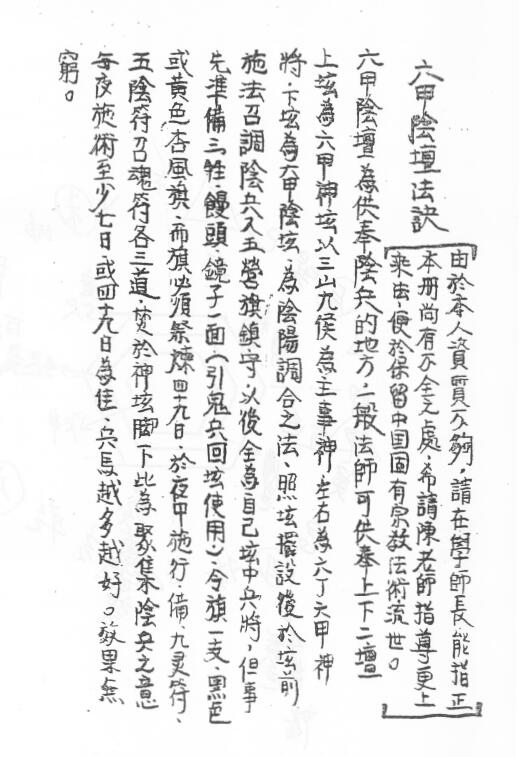 六甲陰壇法訣
由於本人資質不夠，請在學師長能指正
本册尚有不全之處，希請陳老師指導更上
乘法，便於保留中国固有宗教法術流世。
六甲陰壇為供奉陰兵的地方，一般法師可供奉上下二壇
上坛為六甲神坛以三山九侯為主事神，左右為六丁六甲神
將，下坛為六甲陰坛，為陰陽調合之法、照坛擺設後於坛前
施法召調陰兵入五營旗鎮守，以後全為自己坛中兵將，但事
先準備三牲、饅頭、鏡子一面、（引鬼兵回坛使用）、令旗一支、黑色
或黃色杏風旗、而旗必須祭煉四十九日、於夜中施行、備、九灵符、
五陰符召魂符各三道、焚於神坛腳下此為聚集陰兵之意
每夜施術至少七日、或四十九日為佳、兵馬越多越好。效果無
窮。